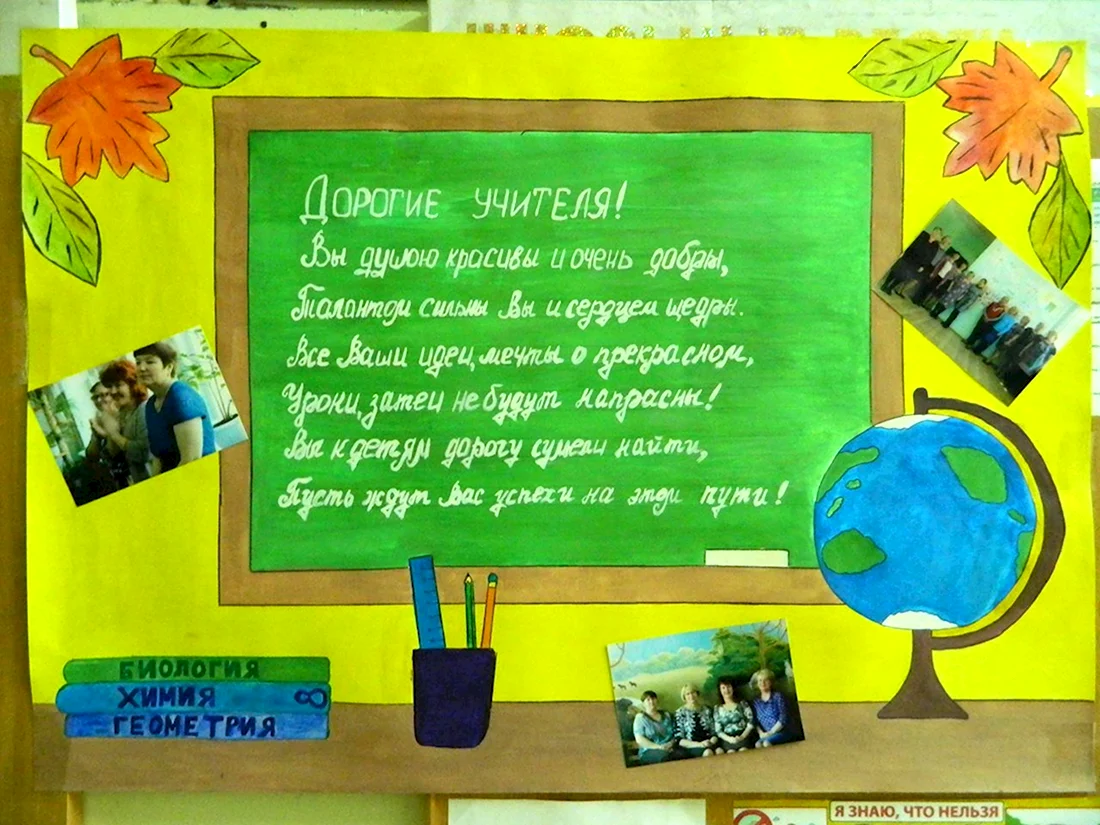 Дорогие учителя!
Вы душою красивы и очень добры,
Талантом сильны Вы и сердцем щедры.
Все Ваши идеи, мечты о прекрасном,
Уроки, затеи не будут напрасны!
Вы к детям дорогу сумели найти,
Пусть ждут Вас успехи на этом пути!
БИОЛОГИЯ
ХИМИЯ 8
ГЕОМЕТРИЯ
Я ЗНАЮ, ЧТО НЕЛЬЗЯ